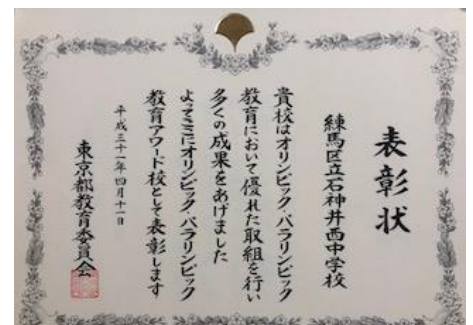 表彰状
練馬区立石神井西中学校
貴校はオリンピック・パラリンピック
教育において優れた取組を行い
多くの成果をあげました
よってここにオリンピック・パラリンピック
教育アワード校として表彰します
平成三十一年四月十一日
東京都教育委員会